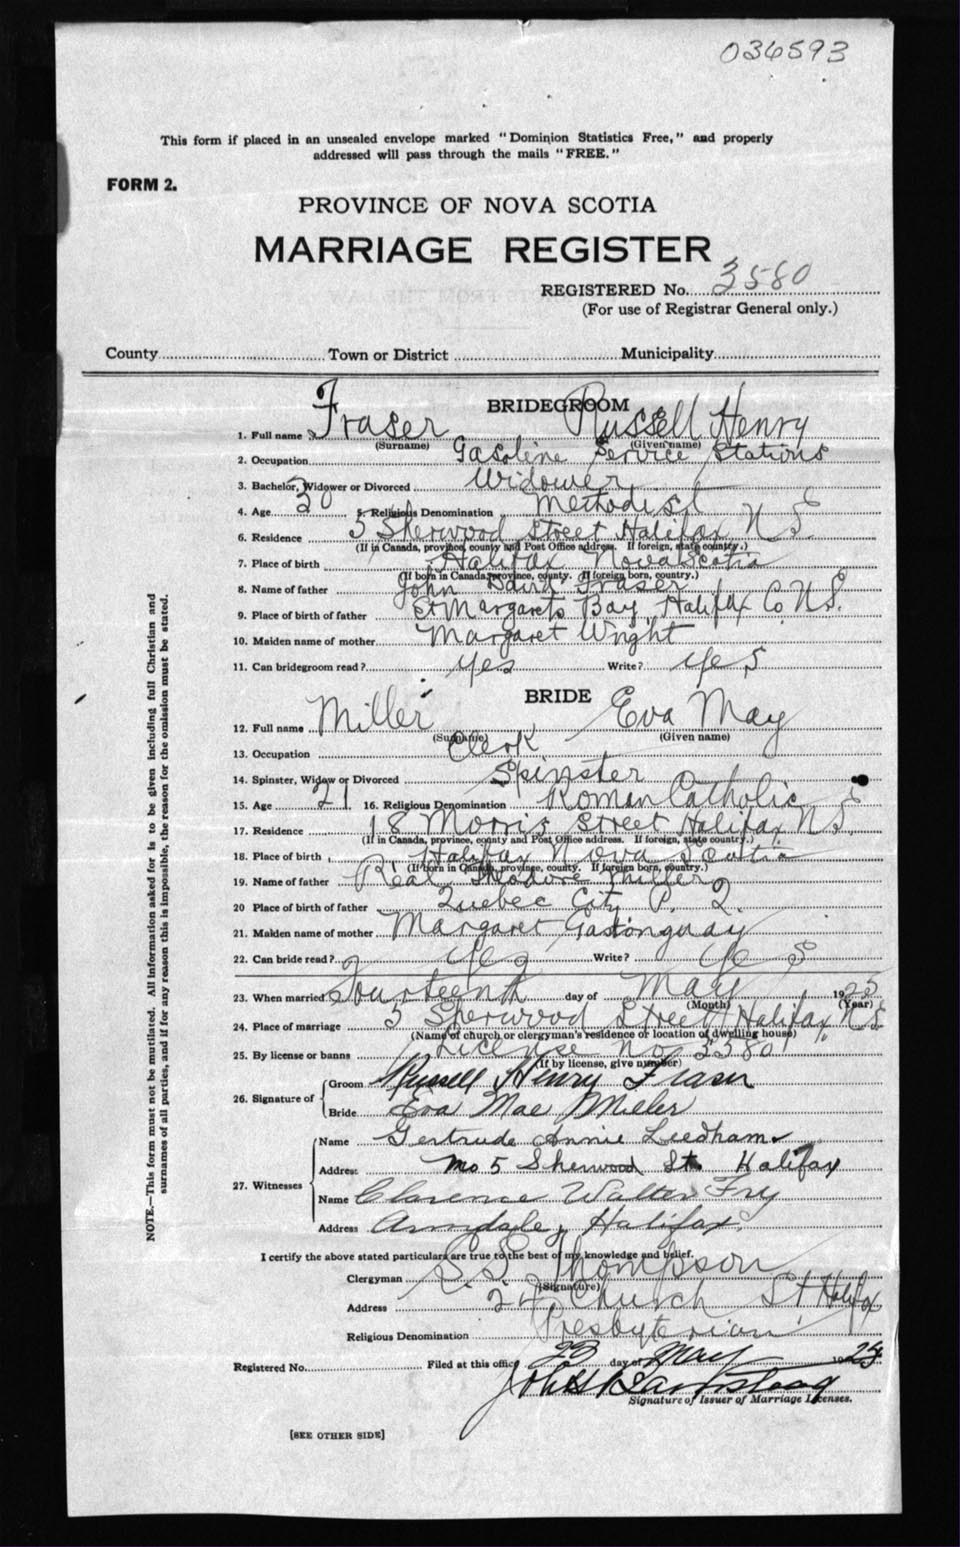 036593
This form if placed in an unsealed envelope marked "Dominion Statistics Free," and properly
addressed will pass through the mails "FREE."
FORM 2.
PROVINCE OF NOVA SCOTIA
MARRIAGE REGISTER
REGISTERED No. 3580
(For use of Registrar General only.)
County Town or District Municipality
BRIDEGROOM
1. Full name Fraser Russell Henry
(Surname) (Given name)
2. Occupation Gasoline Service Stations
3. Bachelor, Widower or Divorced Widower
4. Age 30 5. Religious Denomination Methodist
6. Residence 5 Sherwood Street Halifax N S
(If in Canada, province, county and Post Office address. If foreign, state country.)
7. Place of birth Halifax Nova Scotia
(If born in Canada, province, county. If foreign born, country.)
8. Name of father John David Fraser
9. Place of birth of father St Margarets Bay, Halifax Co N.S.
10. Maiden name of mother Margaret Wright
11. Can bridegroom read? yes Write? yes
BRIDE
12. Full name Miller Eva May
(Surname) (Given name)
13. Occupation Clerk
14. Spinster, Widow or Divorced Spinster
15. Age 21 16. Religious Denomination Roman Catholic
17. Residence 18 Morris Street Halifax N S.
(If in Canada, province, county and Post Office address. If foreign, state country.)
18. Place of birth Halifax Nova Scotia
(If born in Canada, province, county. If foreign born, country.)
19. Name of father Real Theodore Miller
20 Place of birth of father Quebec City P. Q.
21. Maiden name of mother Margaret Gastonguay
22. Can bride read? Yes Write? Yes
23. When married Fourteenth day of May 1925
(Month) (Year)
24. Place of marriage 5 Sherwood Street Halifax N S
(Name of church or clergyman's residence or location of dwelling house)
25. By license or banns License no 3580
(If by license, give number)
26. Signature of Groom Russell Henry Fraser
Bride Eva Mae Miller
27. Witnesses Name Gertrude Annie Leedham
Address No 5 Sherwood St. Halifax
Name Clarence Walter Fry
Address Armdale, Halifax.
I certify the above stated particulars are true to the best of my knowledge and belief.
Clergyman Thompson
(Signature)
Address 24 Church St Halifax
Religious Denomination Presbyterian
Registered No. Filed at this office day of May 19
Signature of Issuer of Marriage Licenses.
[SEE OTHER SIDE]
NOTE.—This form must not be mutilated. All information asked for is to be given including full Christian and
surnames of all parties, and if for any reason this is impossible, the reason for the omission must be stated.